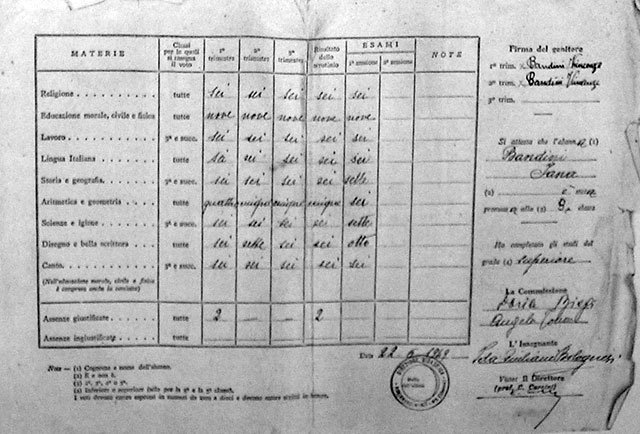 MATERIE
Classi per le quali si assegna il voto
1° trimestre
2° trimestre
3° trimestre
Risultato dello scrutinio
ESAMI
1ª sessione
2ª sessione
NOTE
Religione tutte sei sei sei sei sei
Educazione morale, civile e fisica tutte nove nove nove nove nove
Lavoro 3ª e succ. sei sei sei sei sei
Lingua Italiana tutte sei sei sei sei
Storia e geografia tutte sei sei sei sei sette
Aritmetica e geometria tutte quattro cinque cinque cinque sei
Scienze e igiene 3ª e succ. sei sei sei sei sette
Disegno e bella scrittura tutte sei sette sei sei otto
Canto 3ª e succ. sei sei sei sei sei
(Nell'educazione morale, civile e fisica è compresa anche la condotta)
Assenze giustificate tutte 2 — — 2
Assenze ingiustificate tutte
Note — (1) Cognome e nome dell'alunno.
(2) È o non è.
I voti devono essere espressi in numeri da zero a dieci e devono essere scritti in lettere.
Data 22
Firma del genitore
1° trim. Bandini Vincenzo
2° trim. Bandini Vincenzo
3° trim.
Si attesta che l'alunn (1)
Bandini
(2) è
promoss alla (3) classe
Ha completato gli studi del
grado (4) superiore
La Commissione
Angelo
L' Insegnante
Visto: Il Direttore